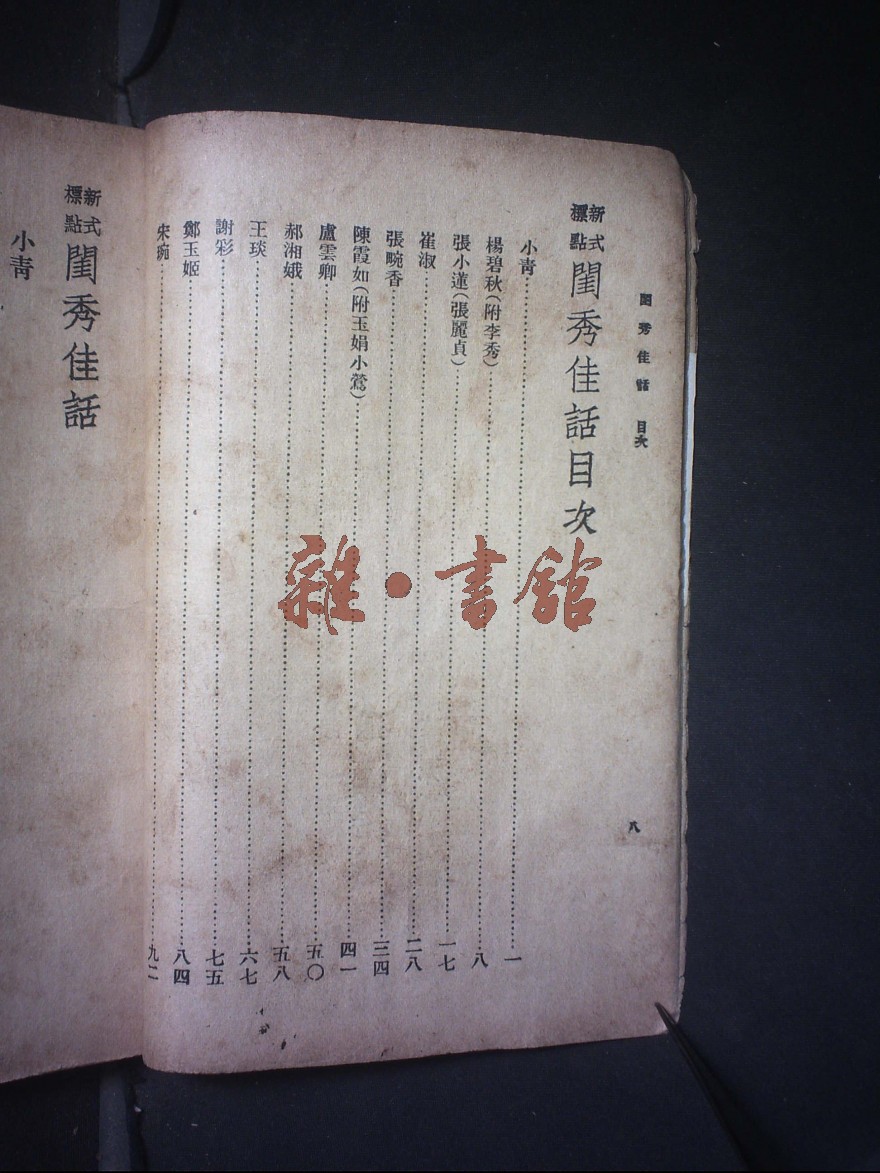 閨秀佳話　目次
八
新式標點　閨秀佳話目次
小青……一
楊碧秋（附李秀）……八
張小蓮（張麗貞）……一七
崔淑……二八
張畹香……三四
陳霞如（附玉娟小鶯）……四一
盧雲卿……五〇
郝湘娥……五八
王琰……六七
謝彩……七五
鄭玉姬……八四
朱琬……九二
新式標點　閨秀佳話
小青
雜·書館